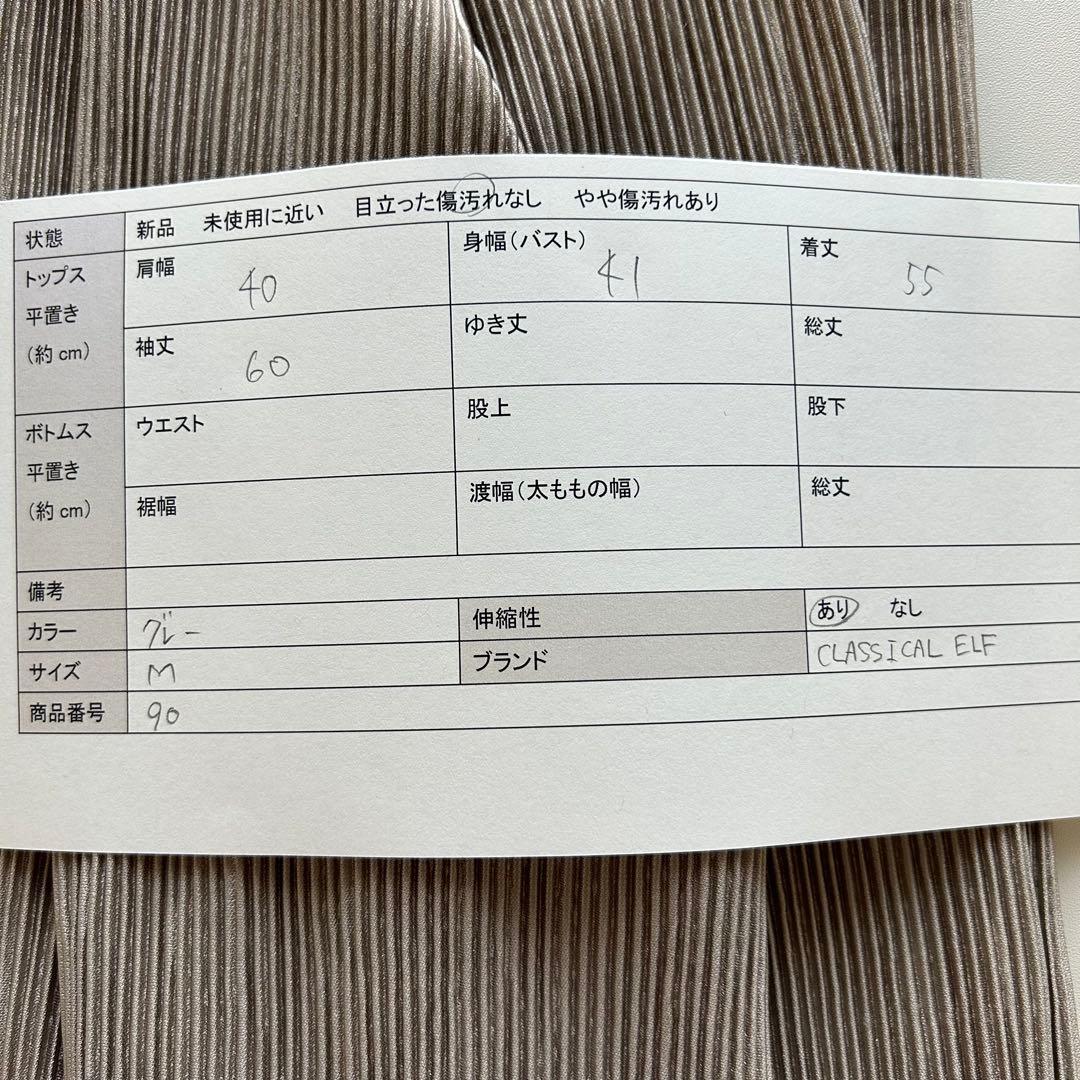 状態 新品 未使用に近い 目立った傷汚れなし やや傷汚れあり
トップス 平置き (約cm)
肩幅 40 身幅(バスト) 41 着丈 55
袖丈 60 ゆき丈 総丈
ボトムス 平置き (約cm)
ウエスト 股上 股下
裾幅 渡幅(太ももの幅) 総丈
備考
カラー グレー 伸縮性 あり なし
サイズ M ブランド CLASSICAL ELF
商品番号 90